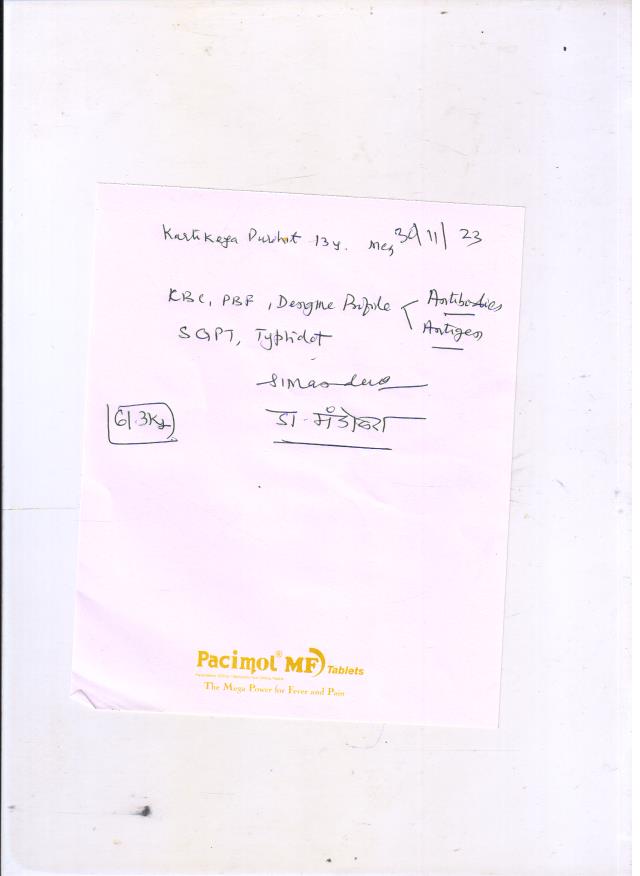 Kartikeya Purohit 13y. Me, 30/11/23
CBC, PBF, Dengue Profile < Antibodies
Antigen
SGPT, Typhidot
डा. मंडोवरा
61.3Kg
Pacimol® MF Tablets
The Mega Power for Fever and Pain